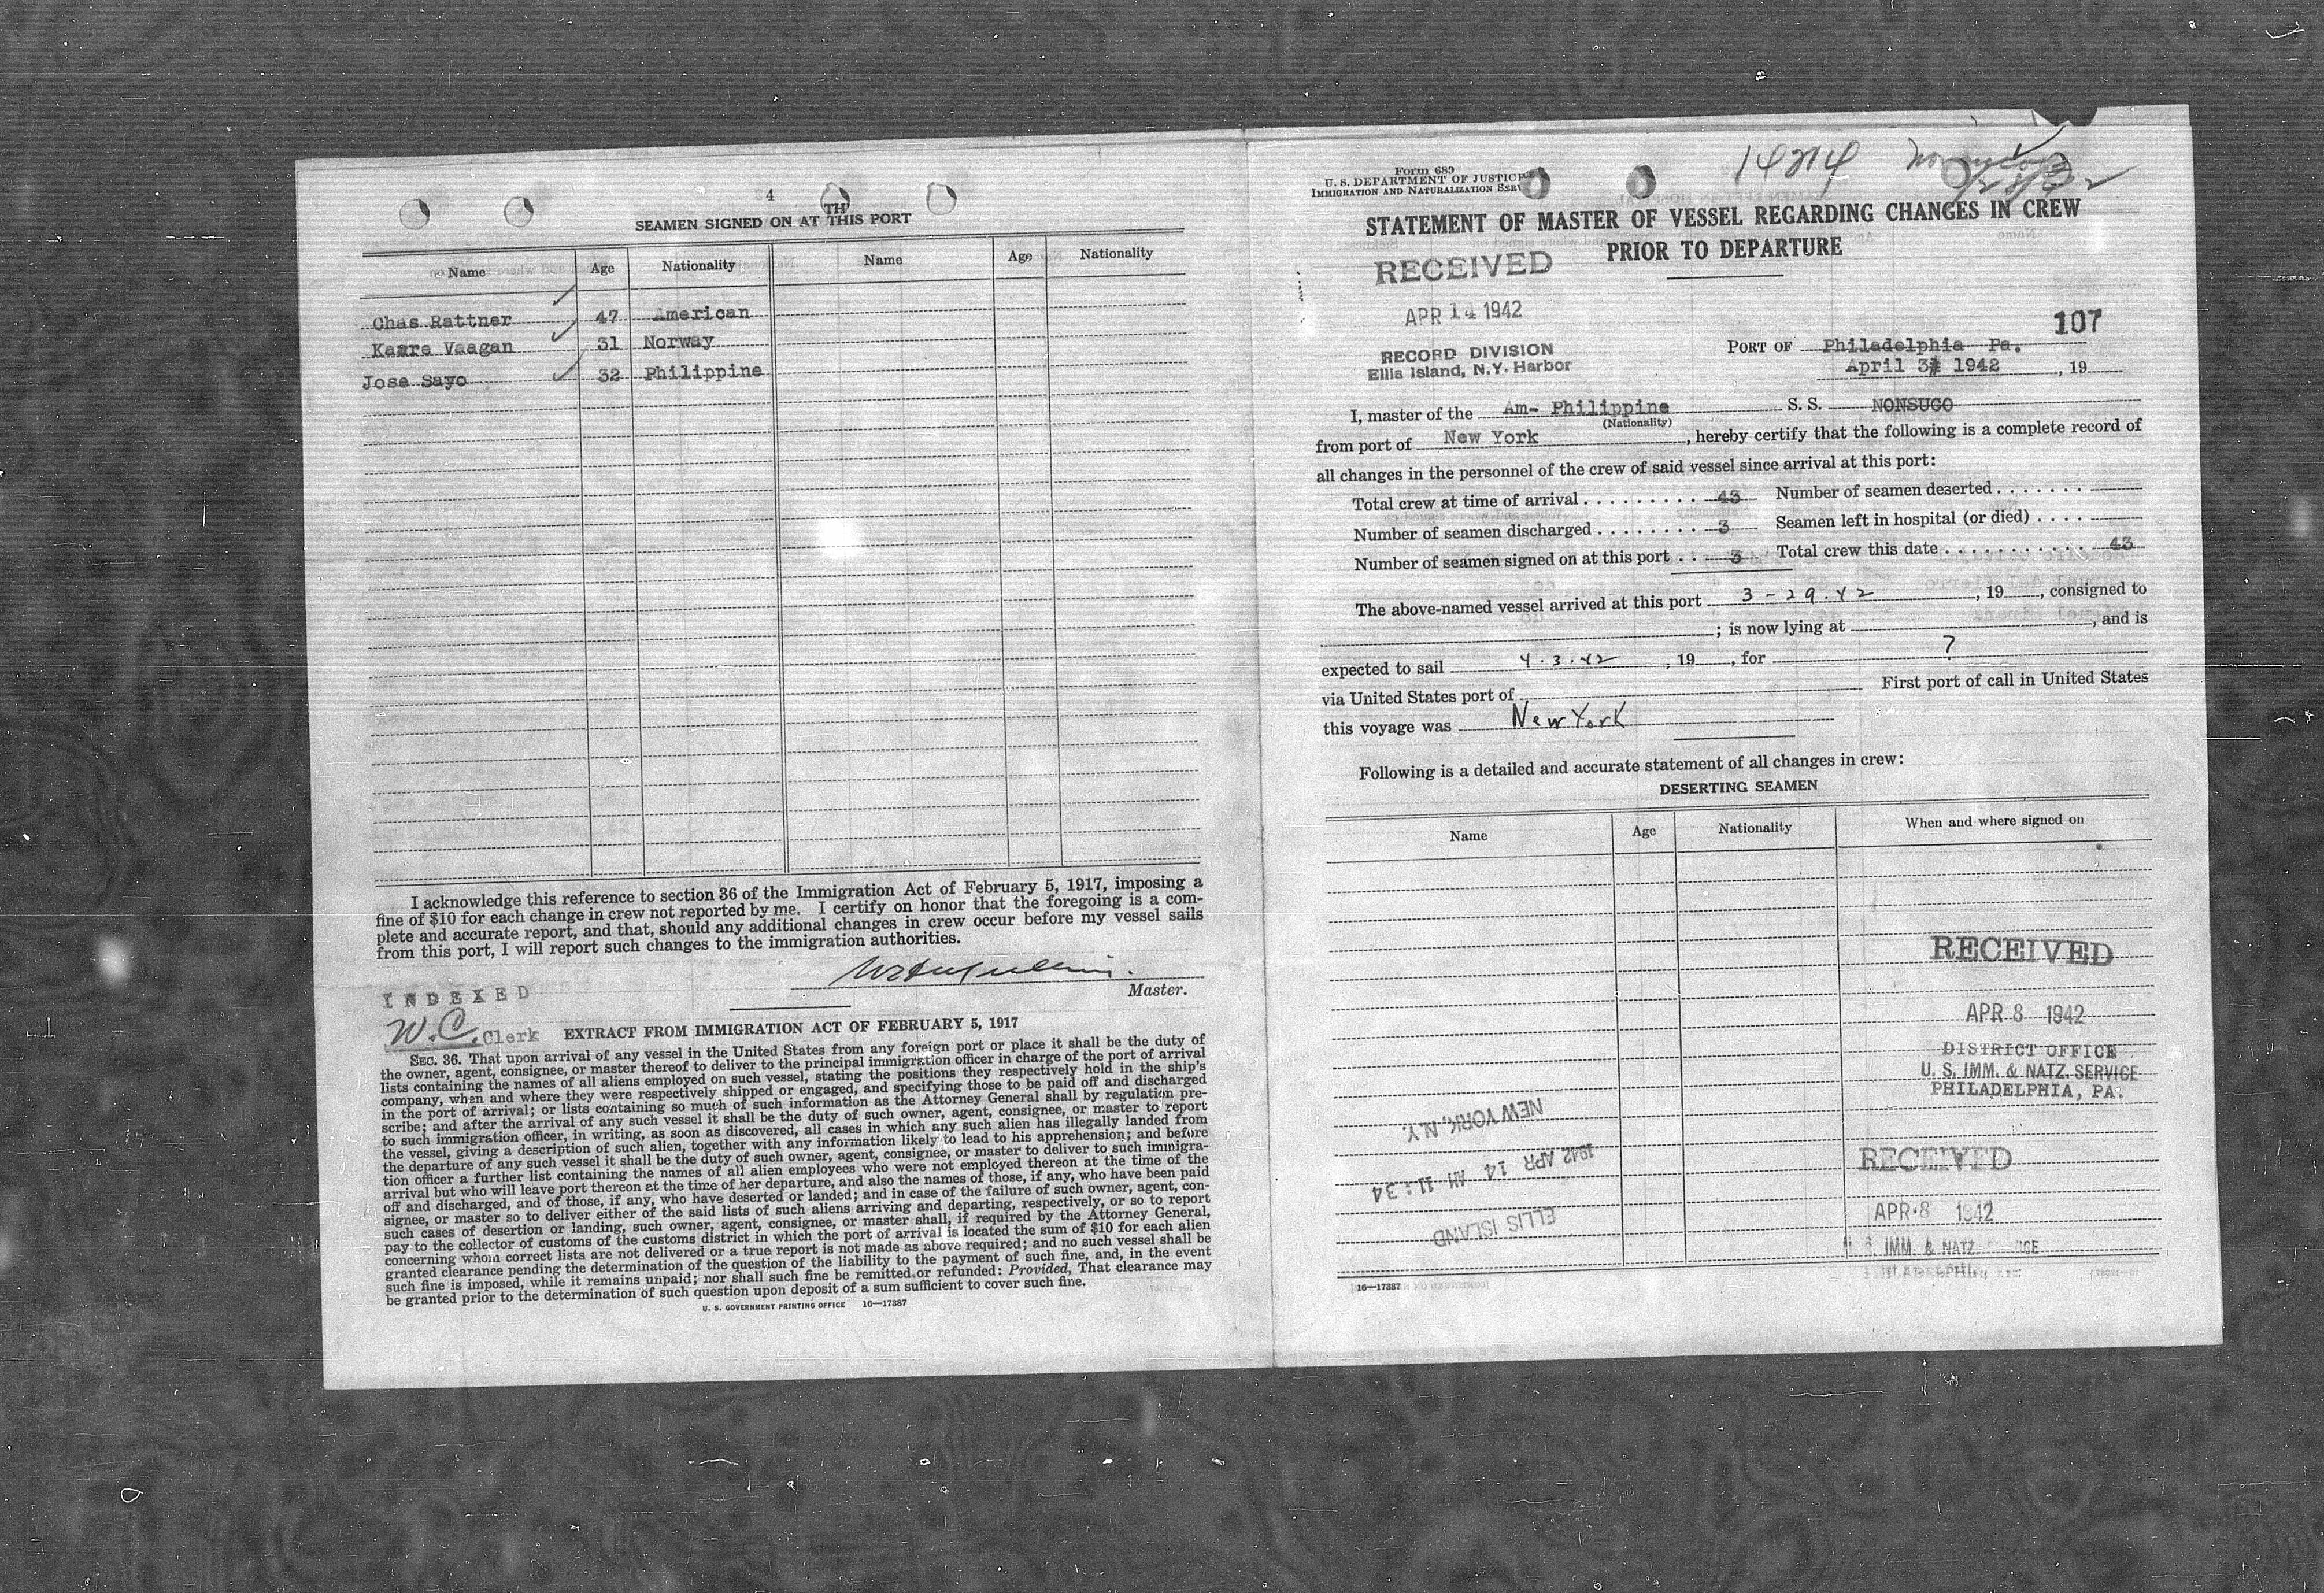 4
TH
SEAMEN SIGNED ON AT THIS PORT
Name Age Nationality Name Age Nationality
Chas Rattner 47 American
Kaare Vaagan 31 Norway
Jose Sayo 32 Philippine
I acknowledge this reference to section 36 of the Immigration Act of February 5, 1917, imposing a
fine of $10 for each change in crew not reported by me. I certify on honor that the foregoing is a com-
plete and accurate report, and that, should any additional changes in crew occur before my vessel sails
from this port, I will report such changes to the immigration authorities.
Master.
INDEXED
W.C. Clerk
EXTRACT FROM IMMIGRATION ACT OF FEBRUARY 5, 1917
SEC. 36. That upon arrival of any vessel in the United States from any foreign port or place it shall be the duty of
the owner, agent, consignee, or master thereof to deliver to the principal immigration officer in charge of the port of arrival
lists containing the names of all aliens employed on such vessel, stating the positions they respectively hold in the ship's
company, when and where they were respectively shipped or engaged, and specifying those to be paid off and discharged
in the port of arrival; or lists containing so much of such information as the Attorney General shall by regulation pre-
scribe; and after the arrival of any such vessel it shall be the duty of such owner, agent, consignee, or master to report
to such immigration officer, in writing, as soon as discovered, all cases in which any such alien has illegally landed from
the vessel, giving a description of such alien, together with any information likely to lead to his apprehension; and before
the departure of any such vessel it shall be the duty of such owner, agent, consignee, or master to deliver to such immigra-
tion officer a further list containing the names of all alien employees who were not employed thereon at the time of the
arrival but who will leave port thereon at the time of her departure, and also the names of those, if any, who have been paid
off and discharged, and of those, if any, who have deserted or landed; and in case of the failure of such owner, agent, con-
signee, or master so to deliver either of the said lists of such aliens arriving and departing, respectively, or so to report
such cases of desertion or landing, such owner, agent, consignee, or master shall, if required by the Attorney General,
pay to the collector of customs of the customs district in which the port of arrival is located the sum of $10 for each alien
concerning whom correct lists are not delivered or a true report is not made as above required; and no such vessel shall be
granted clearance pending the determination of the question of the liability to the payment of such fine, and, in the event
such fine is imposed, while it remains unpaid; nor shall such fine be remitted or refunded: Provided, That clearance may
be granted prior to the determination of such question upon deposit of a sum sufficient to cover such fine.
U. S. GOVERNMENT PRINTING OFFICE 16—17387
Form 689
U. S. DEPARTMENT OF JUSTICE
IMMIGRATION AND NATURALIZATION SERV
14214
STATEMENT OF MASTER OF VESSEL REGARDING CHANGES IN CREW
PRIOR TO DEPARTURE
RECEIVED
APR 14 1942
RECORD DIVISION
Ellis Island, N.Y. Harbor
107
PORT OF Philadelphia Pa.
April 3 1942, 19
I, master of the Am- Philippine S. S. NONSUCO
(Nationality)
from port of New York, hereby certify that the following is a complete record of
all changes in the personnel of the crew of said vessel since arrival at this port:
Total crew at time of arrival . . . . . . . . . 43 Number of seamen deserted . . . . . . .
Number of seamen discharged . . . . . . . . 3 Seamen left in hospital (or died) . . . .
Number of seamen signed on at this port . . 3 Total crew this date . . . . . . . . . . . 43
The above-named vessel arrived at this port 3-29.42, 19, consigned to
; is now lying at , and is
expected to sail 4.3.42, 19, for ?
via United States port of First port of call in United States
this voyage was New York
Following is a detailed and accurate statement of all changes in crew:
DESERTING SEAMEN
Name Age Nationality When and where signed on
RECEIVED
APR 8 1942
DISTRICT OFFICE
U. S. IMM. & NATZ. SERVICE
PHILADELPHIA, PA.
ELLIS ISLAND
1942 APR 14 AM 11:34
NEW YORK, N.Y.
RECEIVED
APR 8 1942
IMM. & NATZ.
16—17387